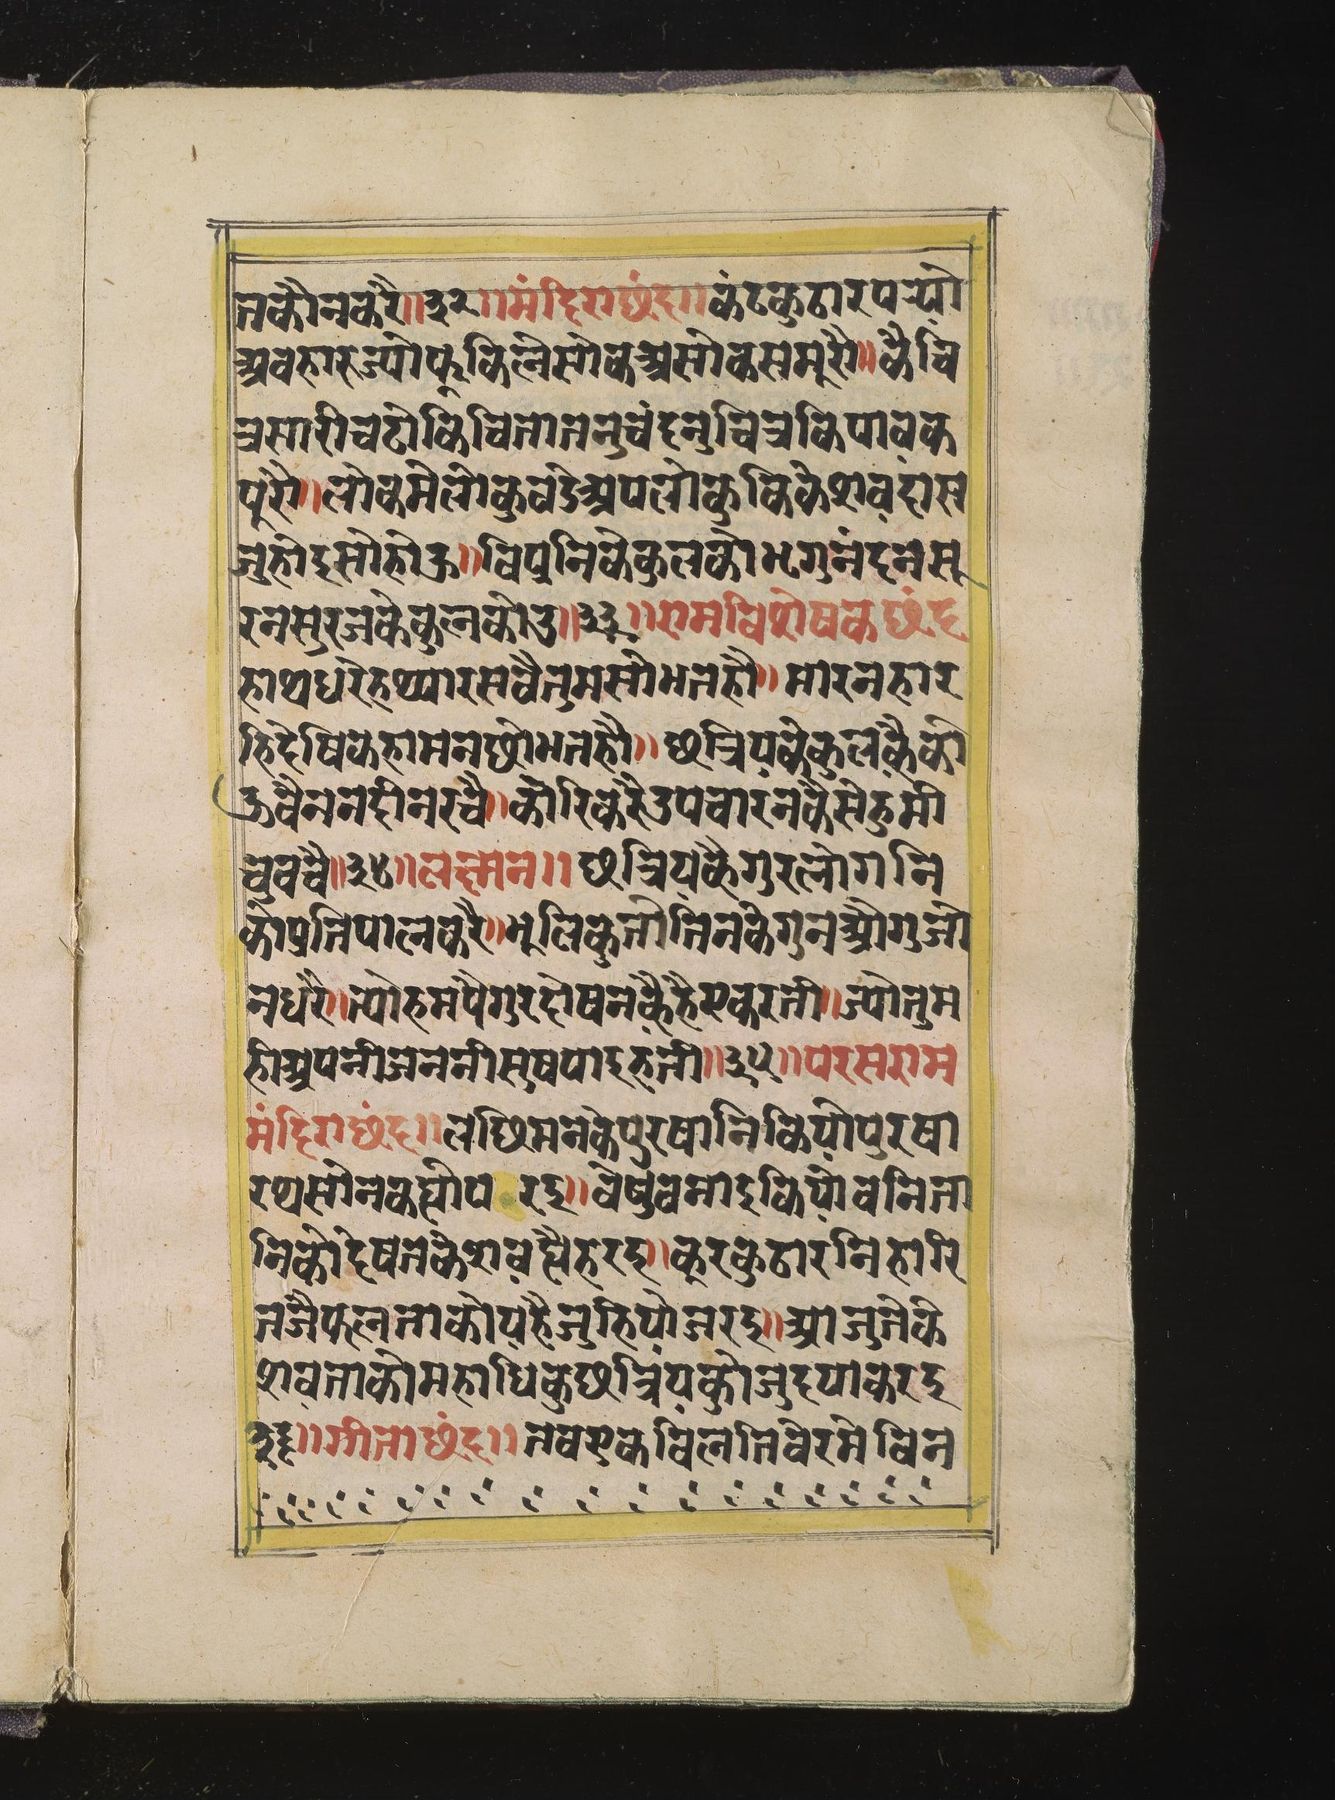 नकौनकरै॥३२॥मंदिराछंद॥कंठकुठारपर्‍यौ
अवहारुज्योफूकिलैसोकअसोकसमूरौ॥कैचि
त्रसारीचढौकिचितानतुचंदनुचित्रकिपावक
पूरौ॥लोकमेलोकुवडेअपलोकुकिकेशवदास
जुहोइसोहोऊ॥विप्रनिकेकुलकोभृगुनंदनसू
रनसूरजकेकुलकोउ॥३३॥रामविशेषकछंद
हाथधरेहथ्यारसवैतुमसोभतहौ॥मारनहार
हिदेषिकहामनछोभतहौ॥छत्रियकेकुलकैकौ
ऊवैननदीनरचै॥कोरिकरैउपचारनकैसेहुमी
चुवचै॥३४॥लछमन॥छत्रियकैगुरलोगनि
कोप्रतिपालकरै॥भूलिकुतौतिनकेगुनऔगुजी
नधरै॥त्योहमपैगुरदोषनकैहैएकरती॥ज्योतुम
हीअपनीजननीसुषपाइहती॥३५॥परसराम
मंदिराछंद॥लछिमनकेपुरषानिकियौपुरषा
रथसोनकह्यौप रइ॥वेषुवनाइकियौवनिता
निकोदेषतकेशवह्वैहरइ॥कूरकुठारनिहारि
तजैफलताकोयहैजुहियोजरइ॥आजुतेके
शवताकोमहाधिकुछत्रियकोजुदयाकरइ
३६॥गीताछंद॥तवएकविलतिवेरमेविन